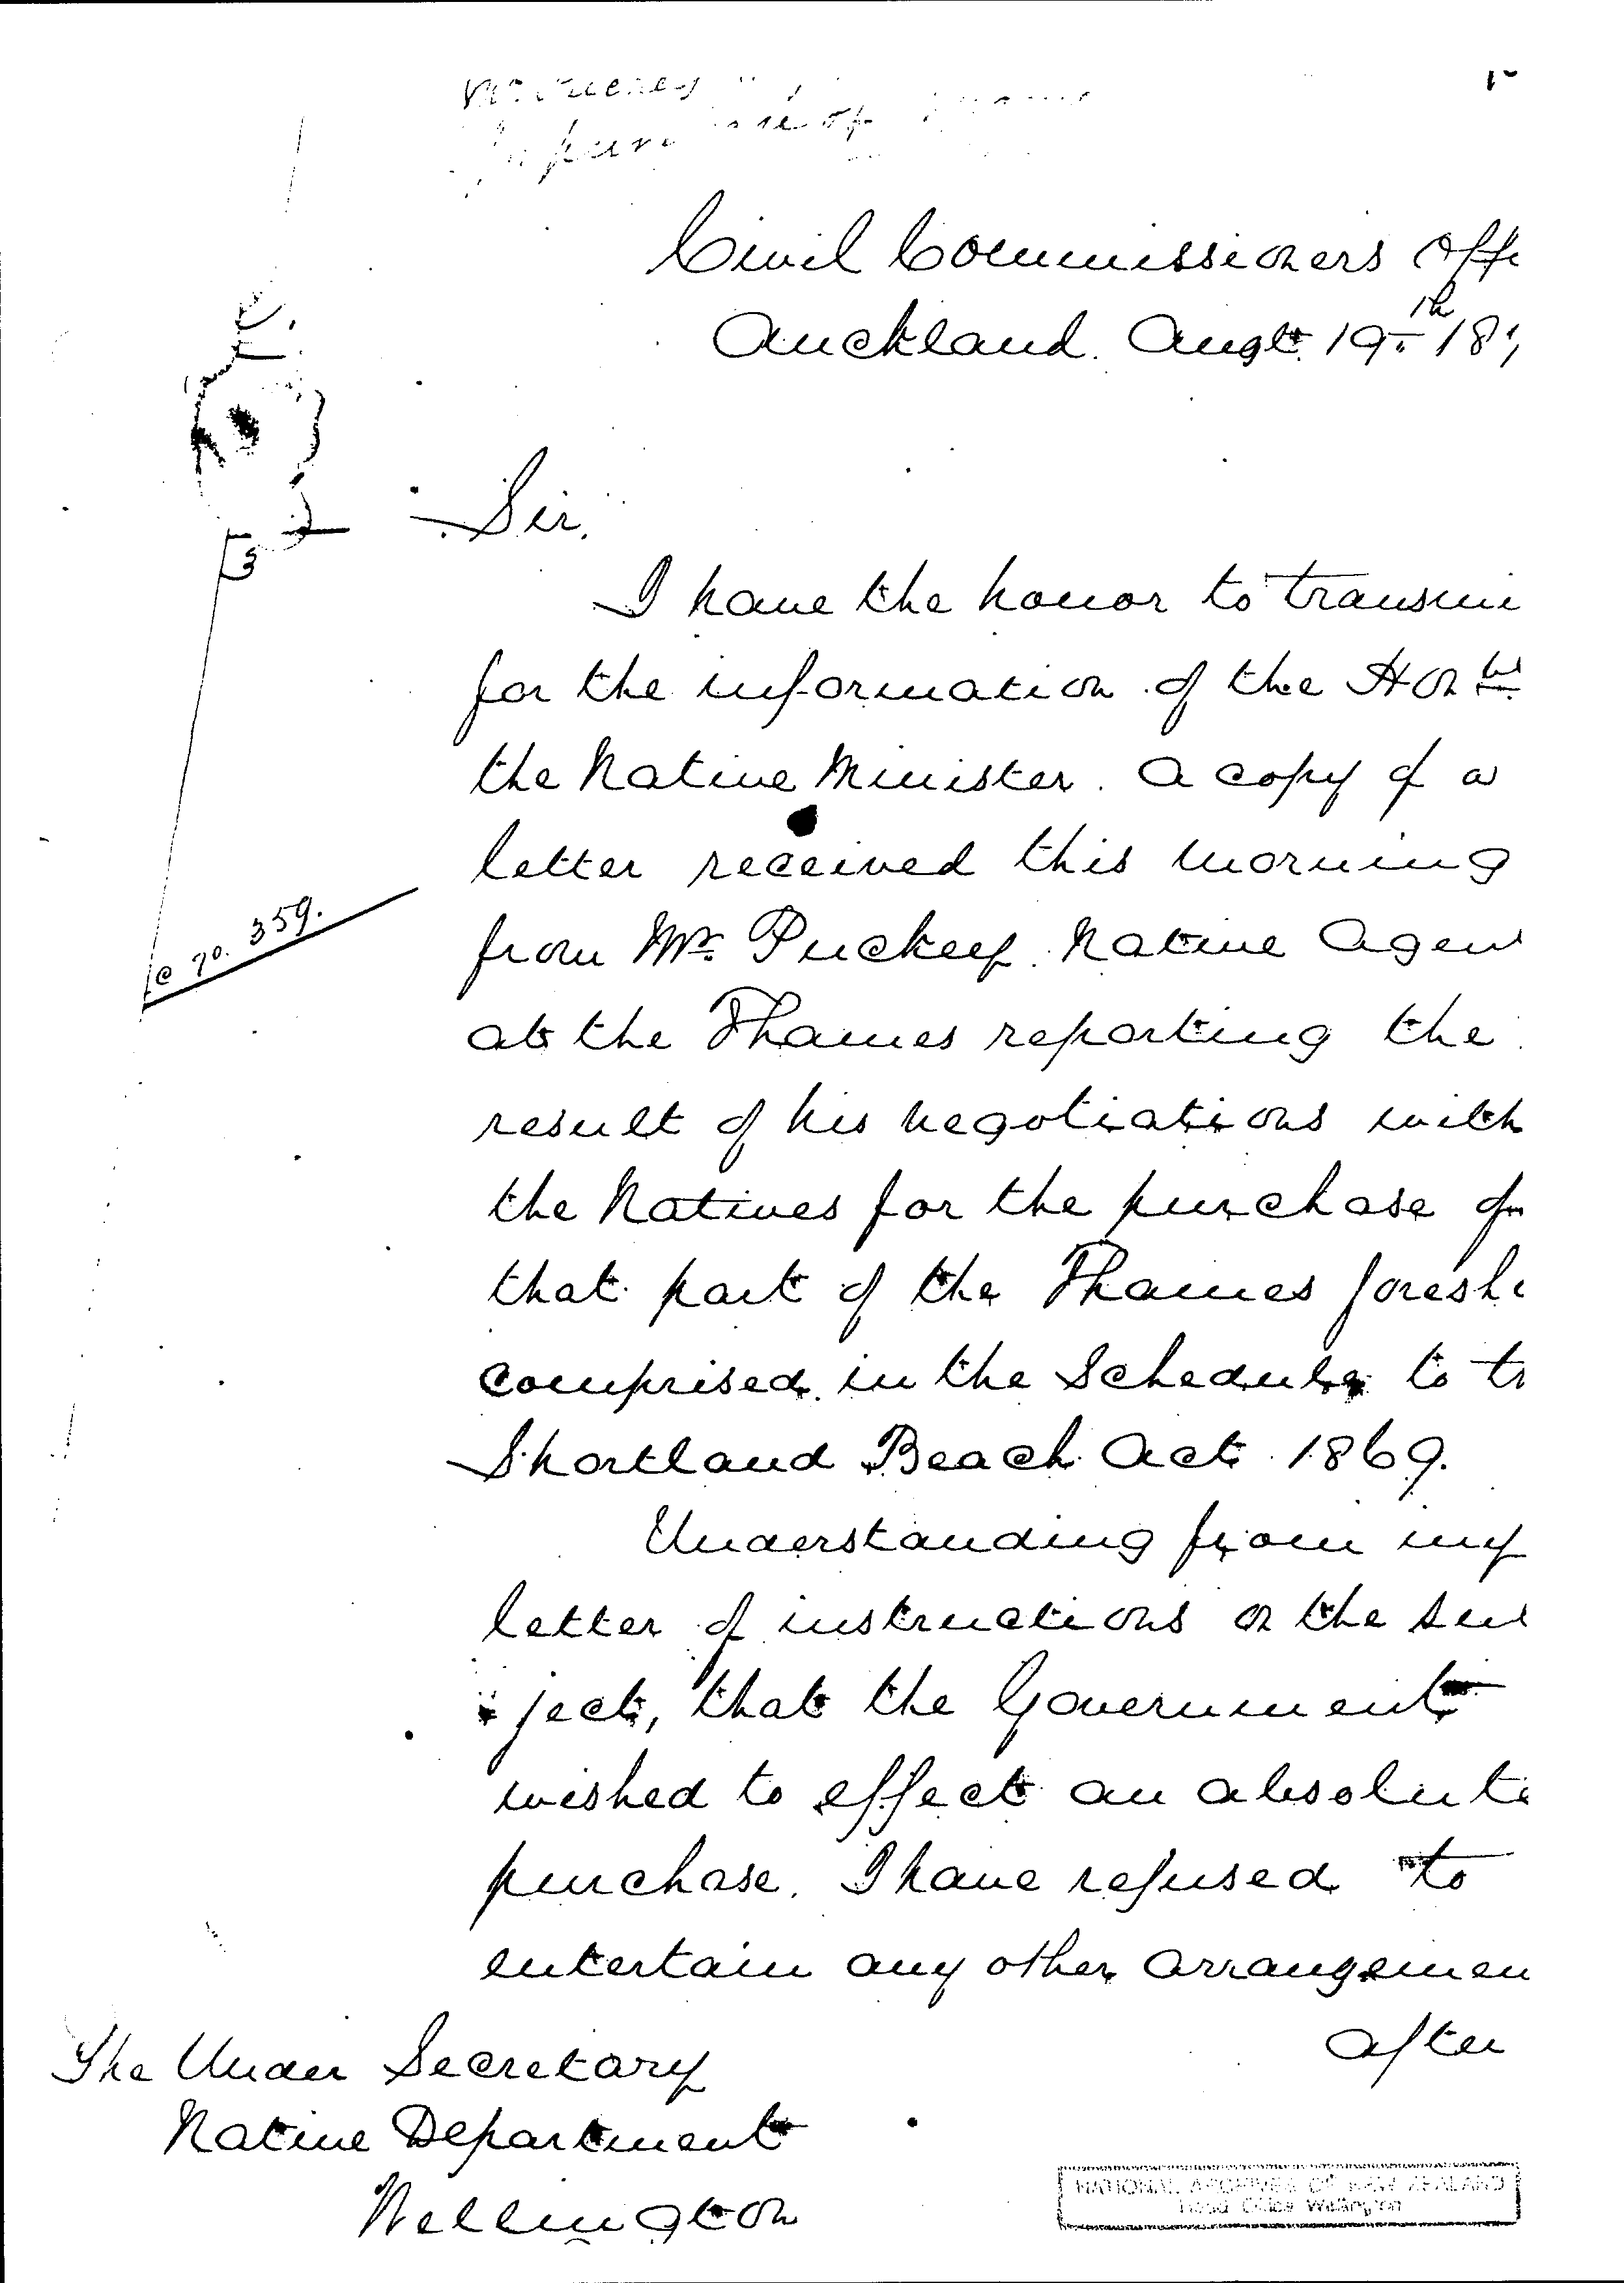 Civil Commissioners Offi
Auckland. Augt. 19th 187
Sir,
I have the honor to transmi
for the information of the Honble
the Native Minister. a copy of a
letter received this morning
from Mr. Puckey. Native Agent
at the Thames reporting the
result of his negotiations with
the Natives for the purchase of
that part of the Thames foresh
comprised in the Schedule to th
Shortland Beach Act 1869.
Understanding from my
letter of instructions on the sub
ject, that the Government
wished to effect an absolute
purchase. I have refused to
entertain any other arrangemen
after
The Under Secretary
Native Department
Wellington
70. 359.
NATIONAL ARCHIVES OF NEW ZEALAND
Head Office Wellington